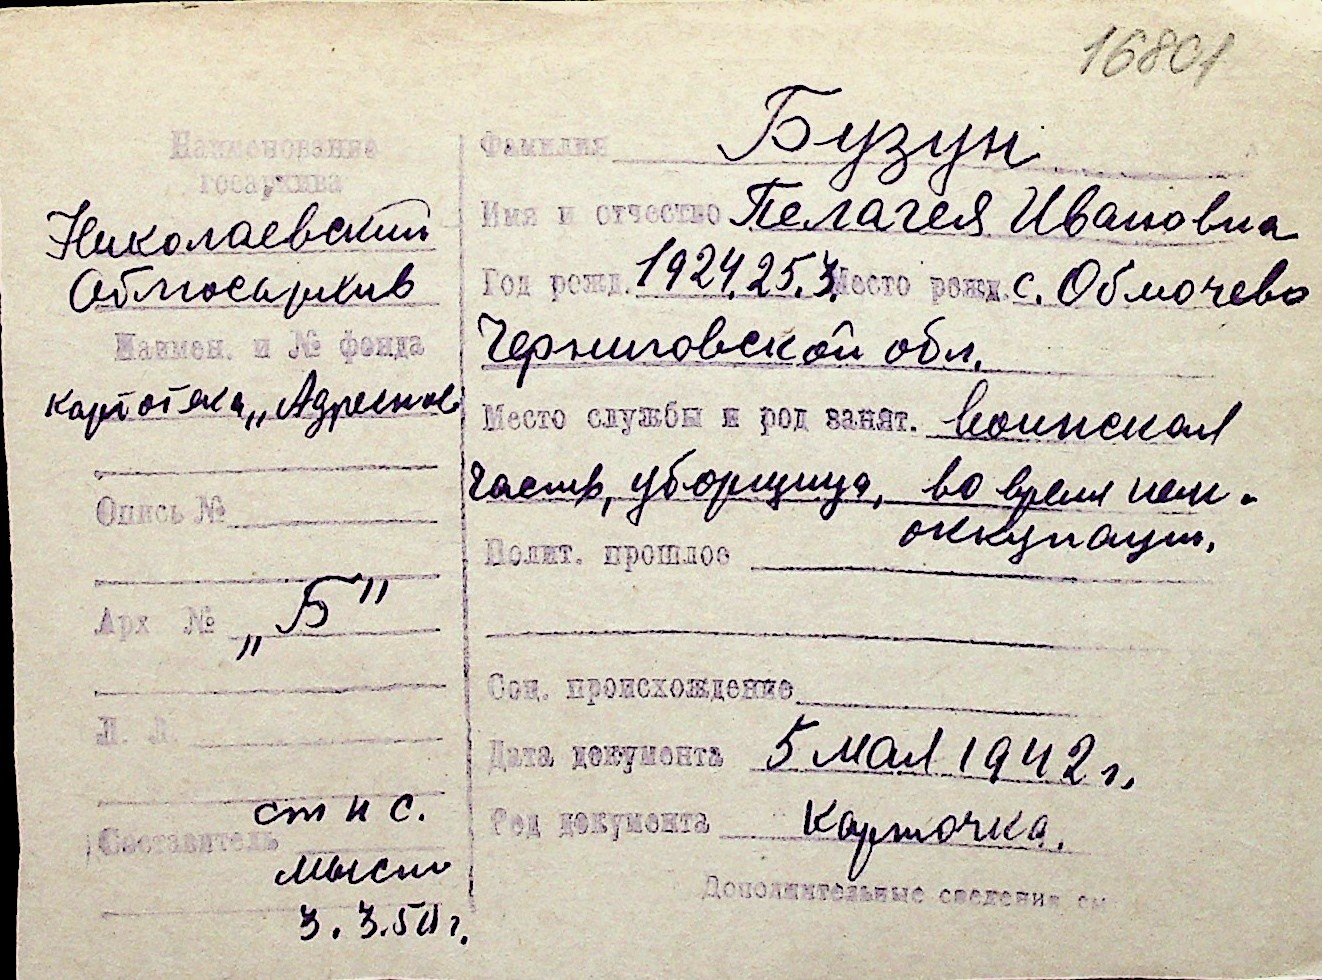 16801
Наименование
госархива
Николаевский
Облгосархив
Наимен. и № фонда
картотека „Адресная
Опись №
Арх № „Б"
Л. Л.
ст н с.
Составитель
3. 3.50 г.
Фамилия Бузун
Имя и отчество Пелагея Ивановна
Год рожд. 1924. 25. 3. Место рожд. с. Обмочево
Черниговской обл.
Место службы и род занят. воинская
часть, уборщица, во время нем.
оккупации.
Полит. прошлое
Соц. происхождение
Дата документа 5 мая 1942 г.
Род документа Карточка.
Дополнительные сведения см